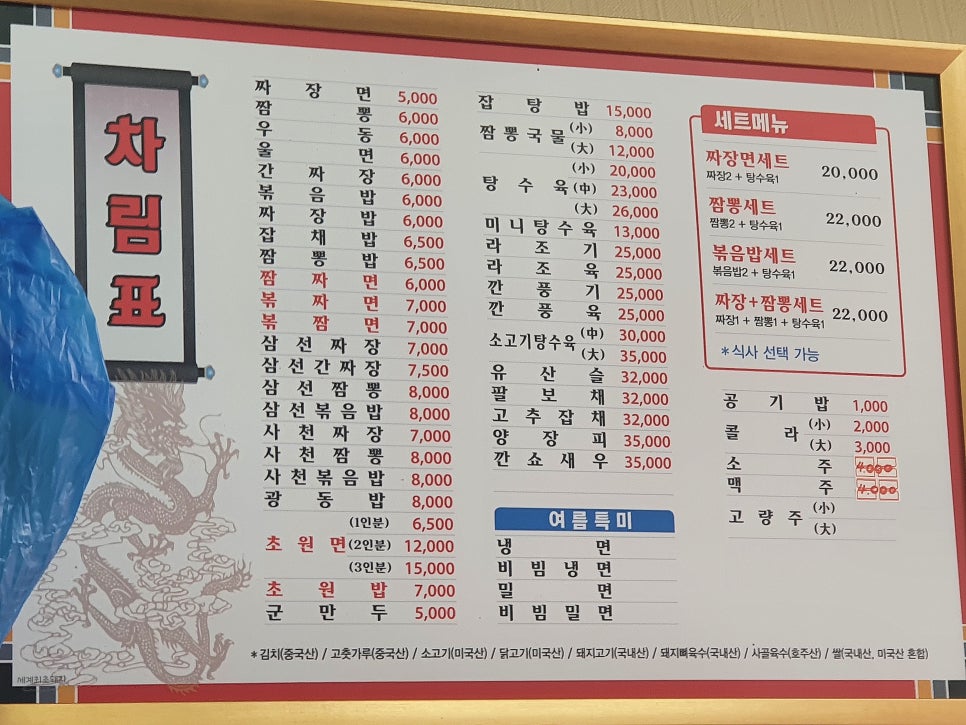 차림표
짜장면 5,000
짬뽕 6,000
우동 6,000
울면 6,000
간짜장 6,000
볶음밥 6,000
짜장밥 6,000
잡채밥 6,500
짬뽕밥 6,500
짬짜면 6,000
볶짜면 7,000
볶짬면 7,000
삼선짜장 7,000
삼선간짜장 7,500
삼선짬뽕 8,000
삼선볶음밥 8,000
사천짜장 7,000
사천짬뽕 8,000
사천볶음밥 8,000
광동밥 8,000
(1인분) 6,500
초원면(2인분) 12,000
(3인분) 15,000
초원밥 7,000
군만두 5,000
잡탕밥 15,000
짬뽕국물(小) 8,000
(大) 12,000
(小) 20,000
탕수육(中) 23,000
(大) 26,000
미니탕수육 13,000
라조기 25,000
라조육 25,000
깐풍기 25,000
깐풍육 25,000
소고기탕수육(中) 30,000
(大) 35,000
유산슬 32,000
팔보채 32,000
고추잡채 32,000
양장피 35,000
깐쇼새우 35,000
여름특미
냉면
비빔냉면
밀면
비빔밀면
세트메뉴
짜장면세트 20,000
짜장2 + 탕수육1
짬뽕세트 22,000
짬뽕2 + 탕수육1
볶음밥세트 22,000
볶음밥2 + 탕수육1
짜장+짬뽕세트 22,000
짜장1 + 짬뽕1 + 탕수육1
*식사 선택 가능
공기밥 1,000
콜라 (小) 2,000
(大) 3,000
소주 4.000
맥주 4.000
고량주 (小)
(大)
*김치(중국산) / 고춧가루(중국산) / 소고기(미국산) / 닭고기(미국산) / 돼지고기(국내산) / 돼지뼈육수(국내산) / 사골육수(호주산) / 쌀(국내산, 미국산 혼합)
세계최초돼지